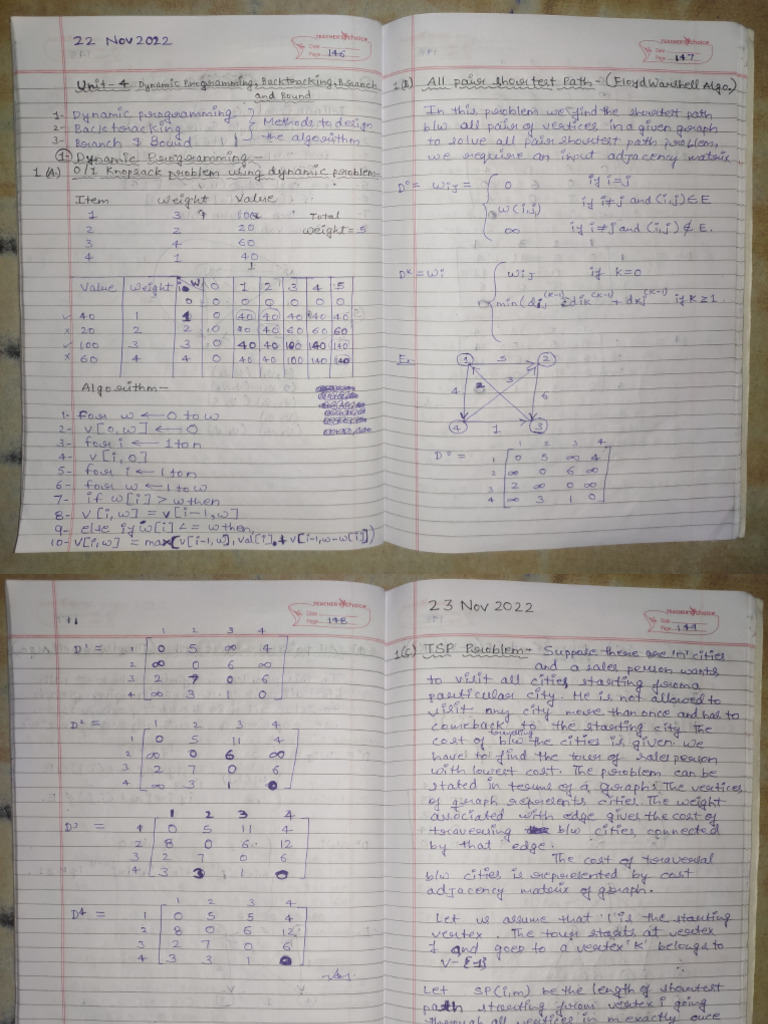 22 Nov 2022
TEACHER'S CHOICE
Date
Page 146
Unit-4 Dynamic Programming, Backtracking, Branch
and Bound
1- Dynamic programming
2- Backtracking
3- Branch & Bound
Methods to design
the algorithm
1- Dynamic Programming -
1(A) 0/1 Knopsack problem using dynamic problem-
Item Weight Value
1 3 100 Total
2 2 20 weight = 5
3 4 60
4 1 40
Value Weight i w 0 1 2 3 4 5
0 0 0 0 0 0 0
✓ 40 1 1 0 40 40 40 40 40
x 20 2 2 0 40 40 60 60 60
✓ 100 3 3 0 40 40 100 140 140
x 60 4 4 0 40 40 100 140 140
Algorithm-
1- for w ← 0 to w
2- v[0,w] ← 0
3- for i ← 1 to n
4- v[i,0]
5- for i ← 1 to n
6- for w ← 1 to w
7- if w[i] > w then
8- v[i,w] = v[i-1,w]
9- else if w[i] <= w then
10- v[i,w] = max[v[i-1,w], val[i] + v[i-1,w-w[i]])
TEACHER'S CHOICE
Date
Page 147
1(B) All pair shortest Path - (Floyd Warshell Algo.)
In this problem we find the shortest path
b/w all pair of vertices in a given graph
to solve all pair shortest path problem,
we require an input adjacency matrix
D⁰ = Wij = 0 if i=j
w(i,j) if i≠j and (i,j)∈E
∞ if i≠j and (i,j)∉E.
Dᴷ = Wi Wij if k=0
min(dij⁽ᴷ⁻¹⁾, dik⁽ᴷ⁻¹⁾ + dkj⁽ᴷ⁻¹⁾ if k≥1
Ex-
1 5 2
4 2 3 6
4 1 3
1 2 3 4
D⁰ = 1 0 5 ∞ 4
2 ∞ 0 6 ∞
3 2 ∞ 0 ∞
4 ∞ 3 1 0
TEACHER'S CHOICE
Date
Page 148
1 2 3 4
D¹ = 1 0 5 ∞ 4
2 ∞ 0 6 ∞
3 2 7 0 6
4 ∞ 3 1 0
1 2 3 4
D² = 1 0 5 11 4
2 ∞ 0 6 ∞
3 2 7 0 6
4 ∞ 3 1 0
1 2 3 4
D³ = 1 0 5 11 4
2 8 0 6 12
3 2 7 0 6
4 3 3 1 0
1 2 3 4
D⁴ = 1 0 5 5 4
2 8 0 6 12
3 2 7 0 6
4 3 3 1 0
23 Nov 2022
TEACHER'S CHOICE
Date
Page 149
1(C) TSP Problem- Suppose there are 'n' cities
and a sales person wants
to visit all cities, starting from a
particular city. He is not allowed to
visit any city more than once and has to
comeback to the starting city The
cost of travelling b/w the cities is given. we
have to find the tour of sales person
with lowest cost. The problem can be
stated in terms of a graph. The vertices
of graph represents cities. The weight
associated with edge gives the cost of
traversing b/w cities, connected
by that edge.
The cost of traversal
b/w cities is represented by cost
adjacency matrix of graph.
Let us assume that '1' is the starting
vertex. The tour starts at vertex
1 and goes to a vertex 'K' belongs to
V-{1}
Let SP(i,m) be the length of shortest
path starting from vertex i going
through all vertices in m exactly once